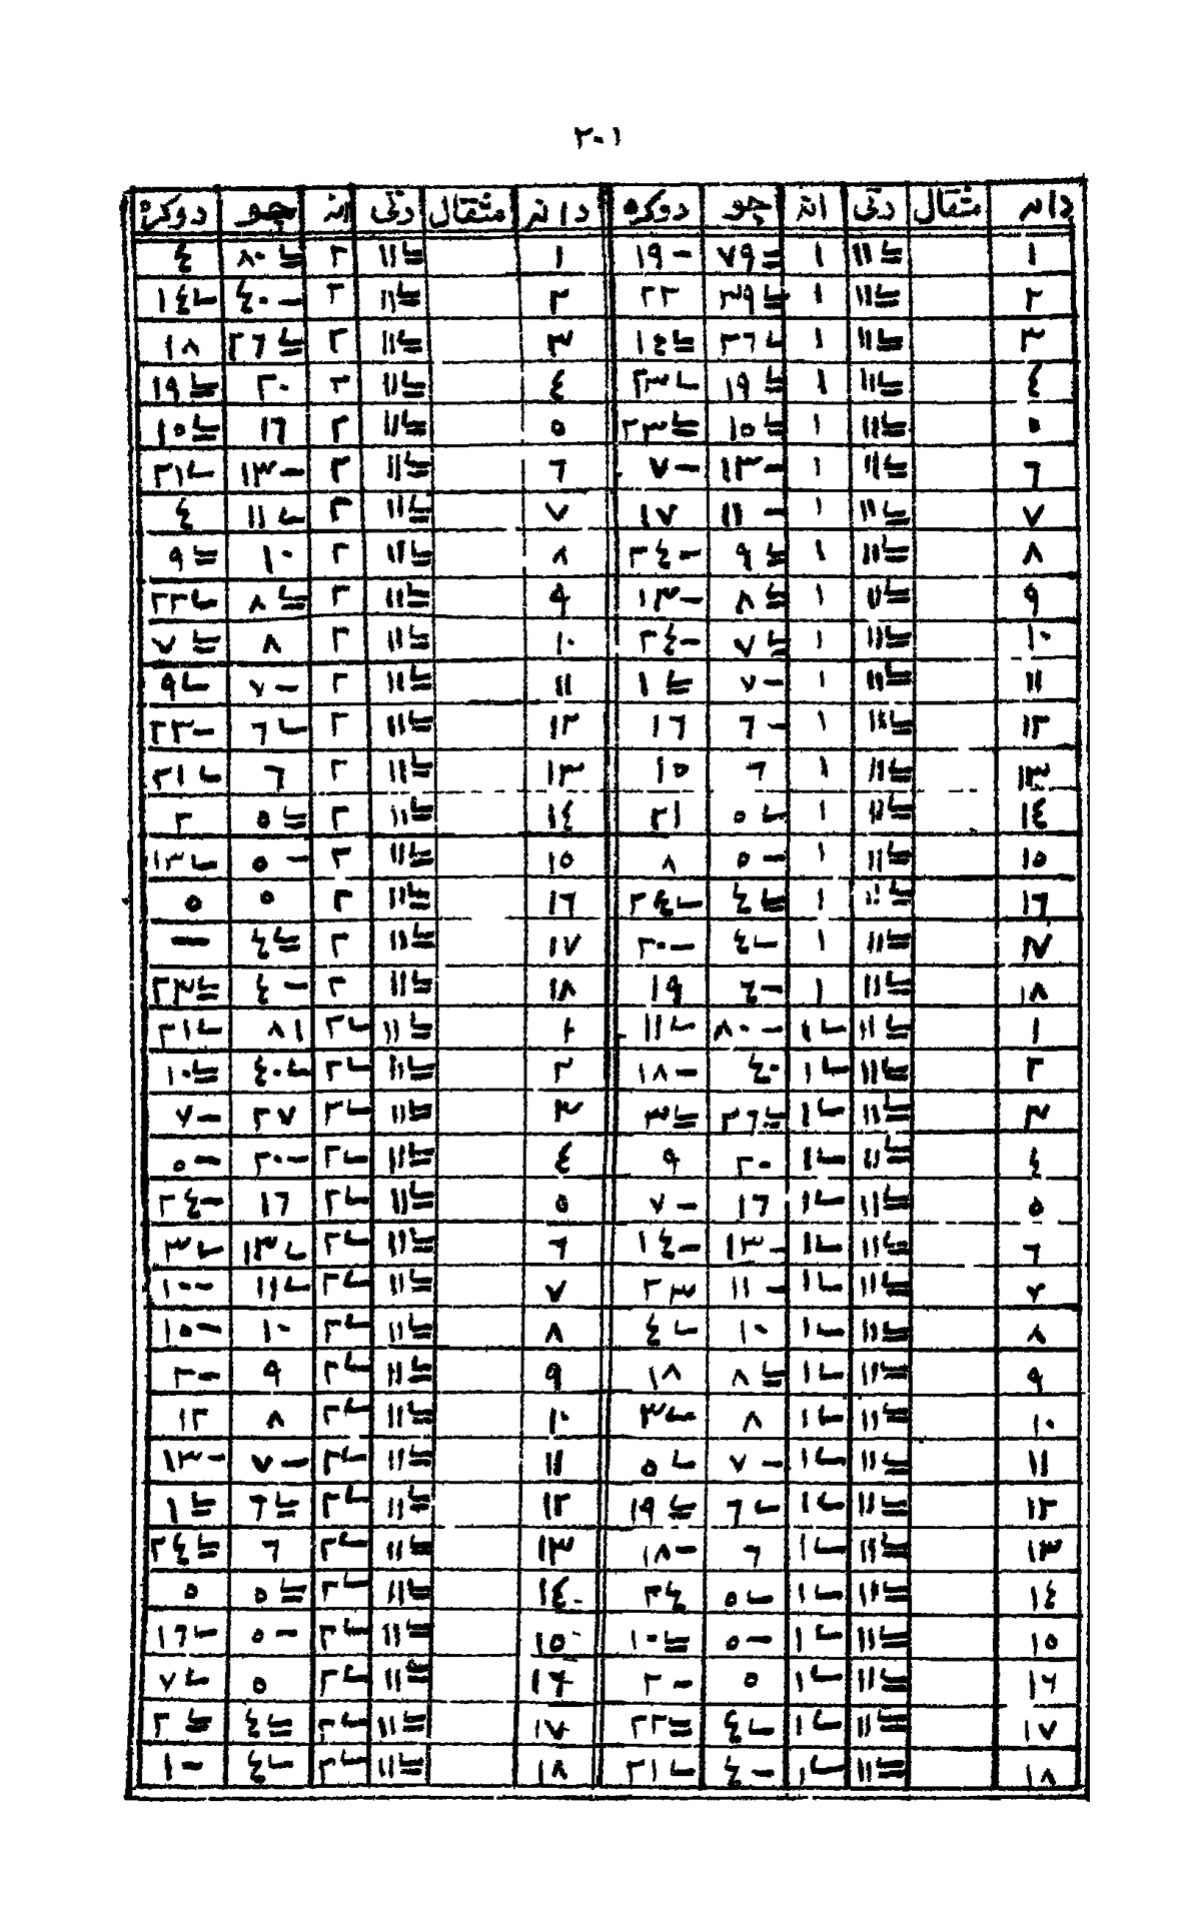 ٢٠١
دانه مثقال رتي انه چو دوكره دانه مثقال رتي انه چو دوكرة
١ ١١ ١ ٧٩ - ١٩ ١ ١١ ٢ ٨٠ ٤
٢ ١١ ١ ٣٩ ٢٢ ٢ ١١ ٢ - ٤٠ ١٤
٣ ١١ ١ ٢٦ ١٤ ٣ ١١ ٢ ٢٦ ١٨
٤ ١١ ١ ١٩ ٢٣ ٤ ١١ ٢ ٢٠ ١٩
٥ ١١ ١ ١٥ ٢٣ ٥ ١١ ٢ ١٦ ١٥
٦ ١١ ١ - ١٣ - ٧ ٦ ١١ ٢ - ١٣ ٢١
٧ ١١ ١ - ١١ ١٧ ٧ ١١ ٢ ١١ ٤
٨ ١١ ١ ٩ - ٢٤ ٨ ١١ ٢ ١٠ ٩
٩ ١١ ١ ٨ - ١٣ ٩ ١١ ٢ ٨ ٢٢
١٠ ١١ ١ ٧ - ٢٤ ١٠ ١١ ٢ ٨ ٧
١١ ١١ ١ - ٧ ١ ١١ ١١ ٢ - ٧ ٩
١٢ ١١ ١ - ٦ ١٦ ١٢ ١١ ٢ ٦ - ٢٢
١٣ ١١ ١ ٦ ١٥ ١٣ ١١ ٢ ٦ ٢١
١٤ ١١ ١ ٥ ٢١ ١٤ ١١ ٢ ٥ ٢
١٥ ١١ ١ - ٥ ٨ ١٥ ١١ ٢ - ٥ ١٢
١٦ ١١ ١ ٤ ٢٤ ١٦ ١١ ٢ ٥ ٥
١٧ ١١ ١ ٤ - ٢٠ ١٧ ١١ ٢ ٤ -
١٨ ١١ ١ - ٤ ١٩ ١٨ ١١ ٢ - ٤ ٢٣
١ ١١ ١ - ٨٠ ١١ ١ ١١ ٢ ٨١ ٢١
٢ ١١ ١ ٤٠ - ١٨ ٢ ١١ ٢ ٤٠ ١٠
٣ ١١ ١ ٢٦ ٣ ٣ ١١ ٢ ٢٧ - ٧
٤ ١١ ١ ٢٠ ٩ ٤ ١١ ٢ - ٢٠ - ٥
٥ ١١ ١ ١٦ - ٧ ٥ ١١ ٢ ١٦ - ٢٤
٦ ١١ ١ - ١٣ - ١٤ ٦ ١١ ٢ ١٣ ٣
٧ ١١ ١ - ١١ ٢٣ ٧ ١١ ٢ ١١ - ١٠
٨ ١١ ١ ١٠ ٤ ٨ ١١ ٢ ١٠ - ١٥
٩ ١١ ١ ٨ ١٨ ٩ ١١ ٢ ٩ - ٢
١٠ ١١ ١ ٨ ٣ ١٠ ١١ ٢ ٨ ١٢
١١ ١١ ١ - ٧ ٥ ١١ ١١ ٢ - ٧ - ١٣
١٢ ١١ ١ ٦ ١٩ ١٢ ١١ ٢ ٦ ١
١٣ ١١ ١ ٦ - ١٨ ١٣ ١١ ٢ ٦ ٢٤
١٤ ١١ ١ ٥ ٢٤ ١٤ ١١ ٢ ٥ ٥
١٥ ١١ ١ - ٥ ١٠ ١٥ ١١ ٢ - ٥ ١٦
١٦ ١١ ١ ٥ - ٢ ١٦ ١١ ٢ ٥ ٧
١٧ ١١ ١ ٤ ٢٢ ١٧ ١١ ٢ ٤ ٢
١٨ ١١ ١ - ٤ ٢١ ١٨ ١١ ٢ ٤ - ١